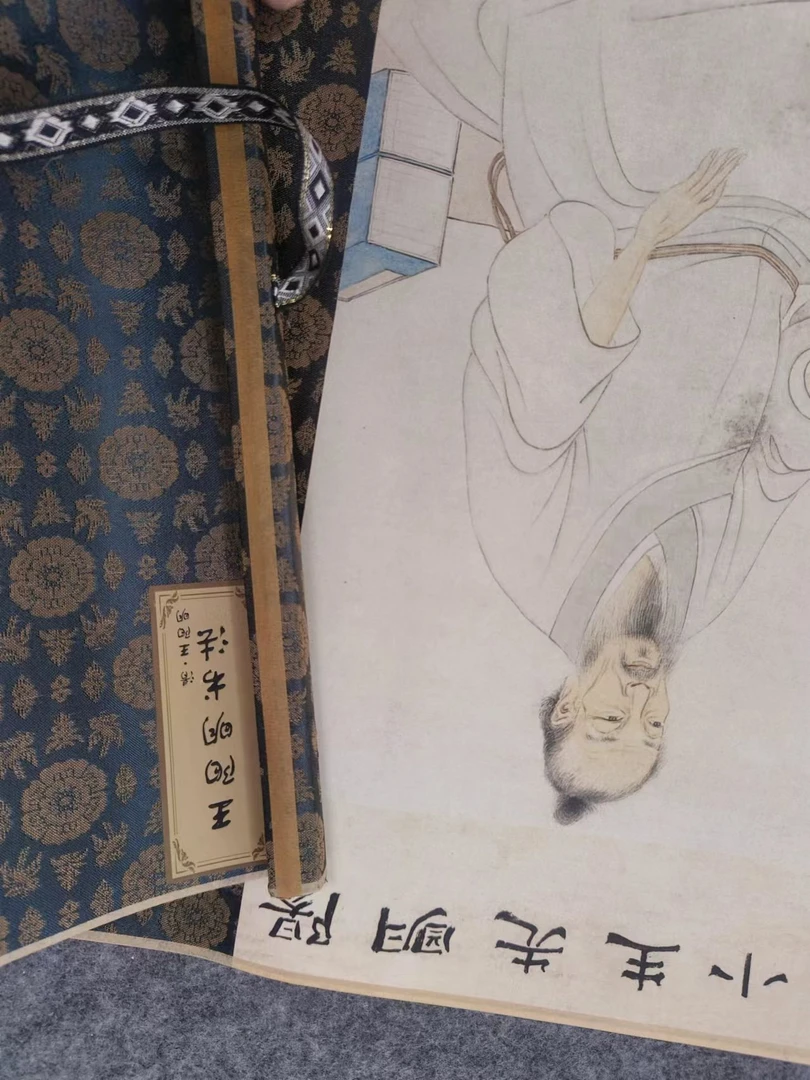 王阳明书法
清·王阳明
陽明先生小